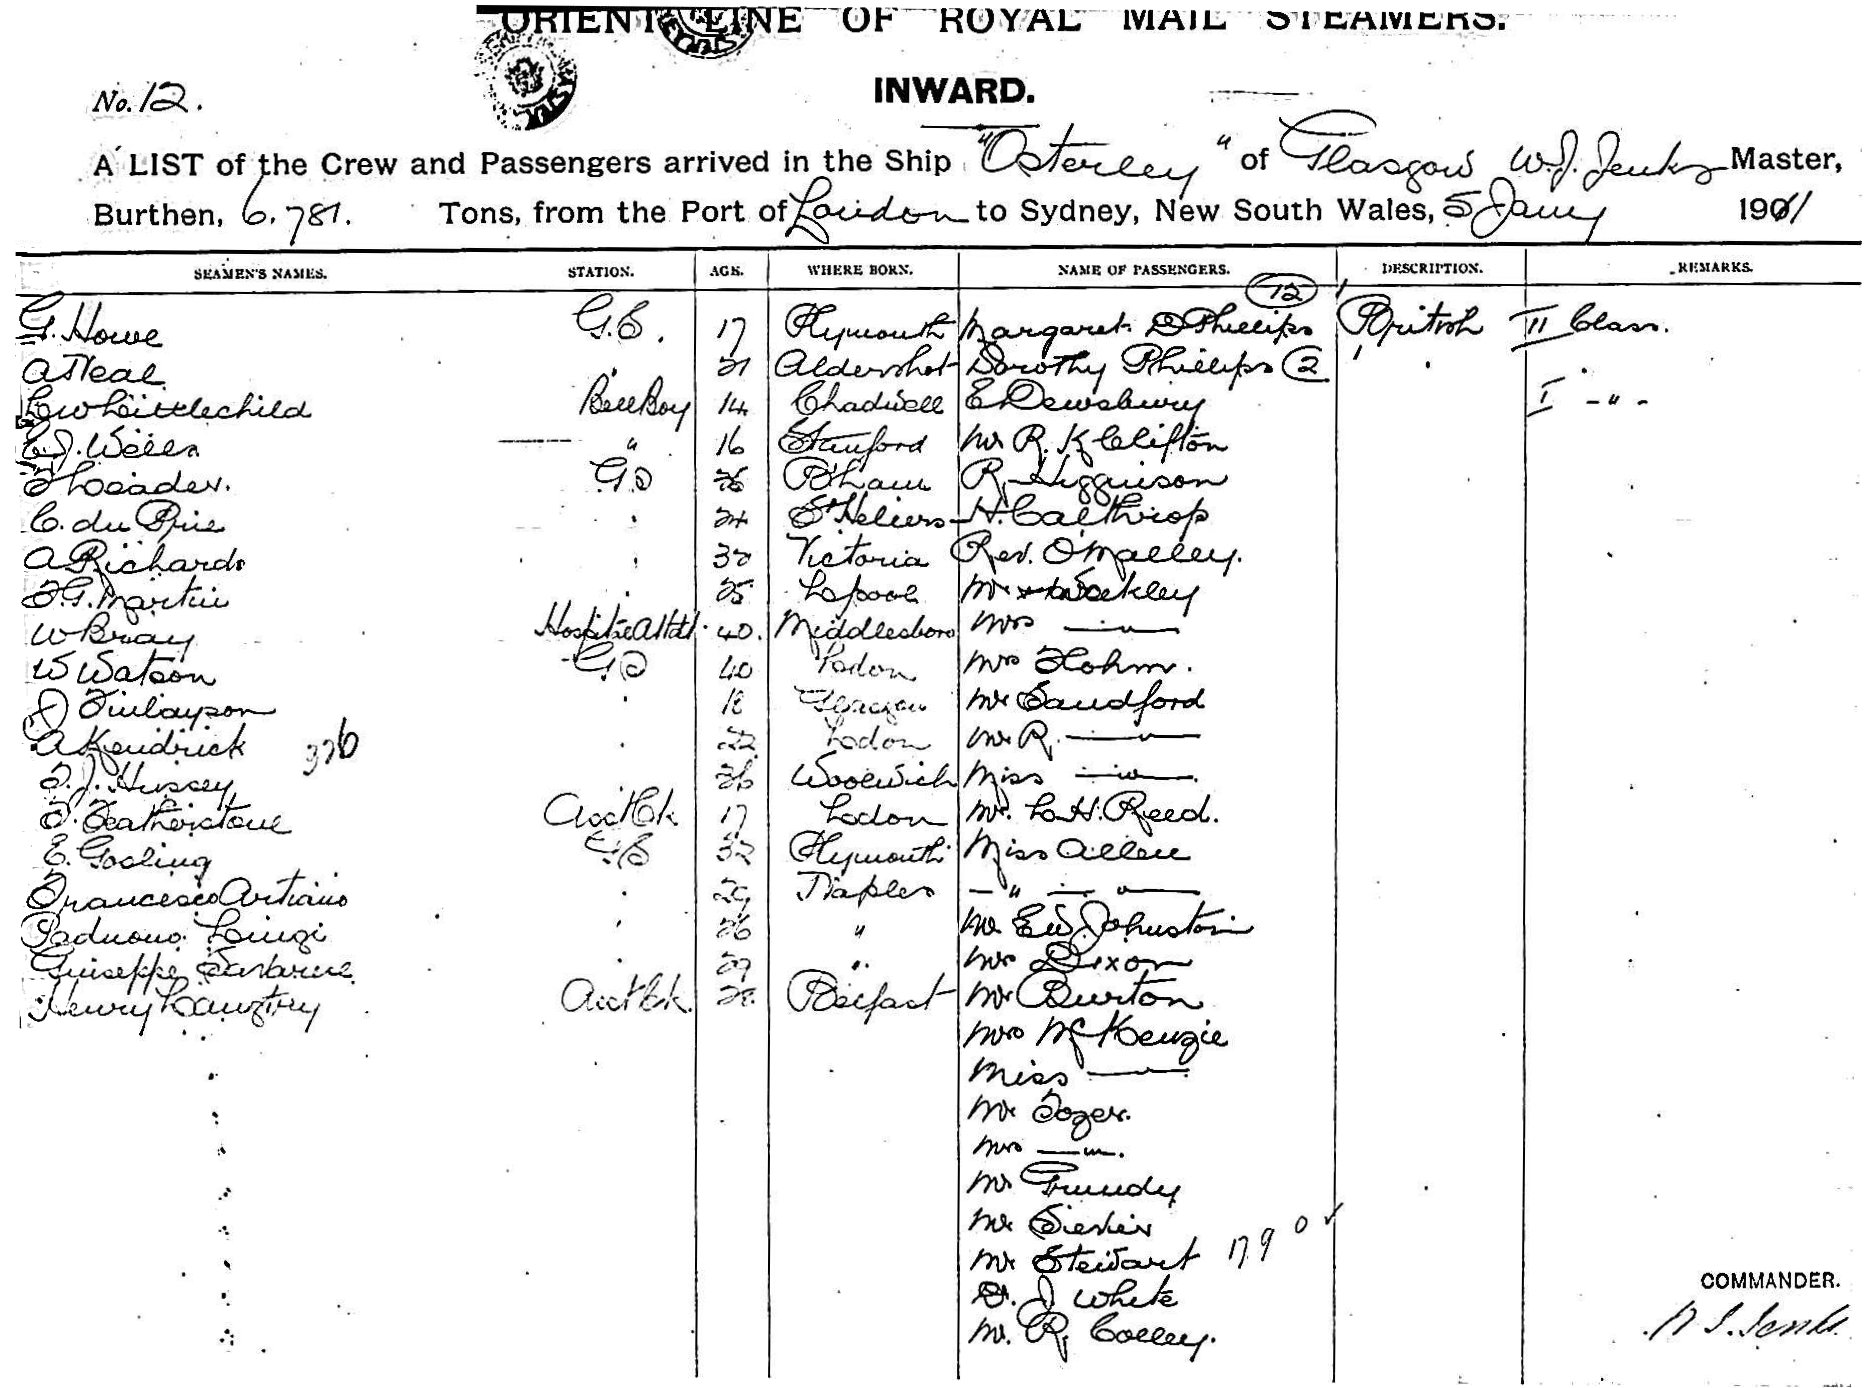 ORIENT LINE OF ROYAL MAIL STEAMERS.
No. 12.
INWARD.
A LIST of the Crew and Passengers arrived in the Ship "Osterley" of Glasgow W. J. Jenks Master,
Burthen, 6.781. Tons, from the Port of London to Sydney, New South Wales, 5 Jany 1911
SEAMEN'S NAMES. STATION. AGE. WHERE BORN. NAME OF PASSENGERS. DESCRIPTION. REMARKS.
12
G. Howe G.S. 17 Plymouth Margaret D Phillips British II Class.
A Neal 21 Aldershot Dorothy Phillips 2
Littlechild Bell Boy 14 Chadwell E Dewsbury I - " -
C. J. Wells " 16 Stanford Mr R. K Clifton
F Leader. G.S 26 B'ham R. Higginson
C. du Prie 24 St Heliers H. Calthrop
A Richards 30 Victoria Rev. O'Malley.
F. G. Martin 25 Lpool Mr Weekley
W Bray Hospital Attdt. 40. Middlesboro Mrs — " —
W Watson GS 40 Lodon Mrs Flohm.
J Finlayson 18 Glasgow Mr Sandford
A Kendrick 376 22 Lodon Mr R. — " —
F. J. Hussey 26 Woolwich Miss — " —
F. Featherstone Asst Ck 17 Lodon Mr. L. H. Reed.
E. Gosling GS 32 Plymouth Miss Allen
Francesco Artiano 29 Naples — " — " —
Paduono Luigi 26 " Mr E W Johnston
Giuseppe 29 " Mrs Dixon
Henry Langtry Asst Ck. 28 Belfast Mr Burton
Mrs McKenzie
Miss — " —
Mr Tozer.
Mrs — " —.
Mr Grundy
Mr Sievier
Mr Stewart 179 0 ✓
COMMANDER.
D. J White
Mr. R. Colley.
W. J. Jenks.